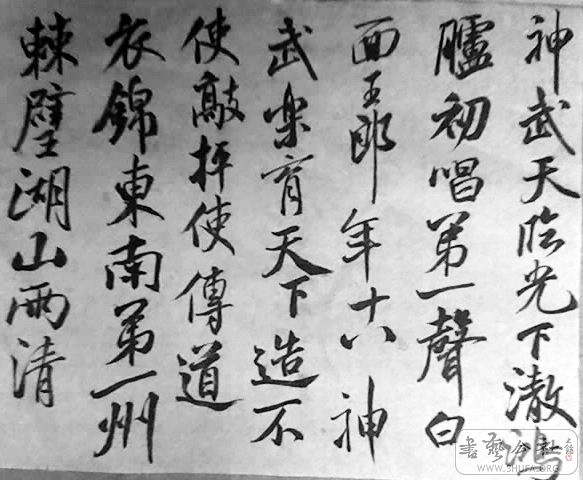 神武天臨光下澈鴻
臚初唱第一聲白
面王郎年十八神
武樂育天下造不
使敲枰使傳道
衣錦東南第一州
棘璧湖山兩清
書藝公社
WWW.SHUFA.ORG